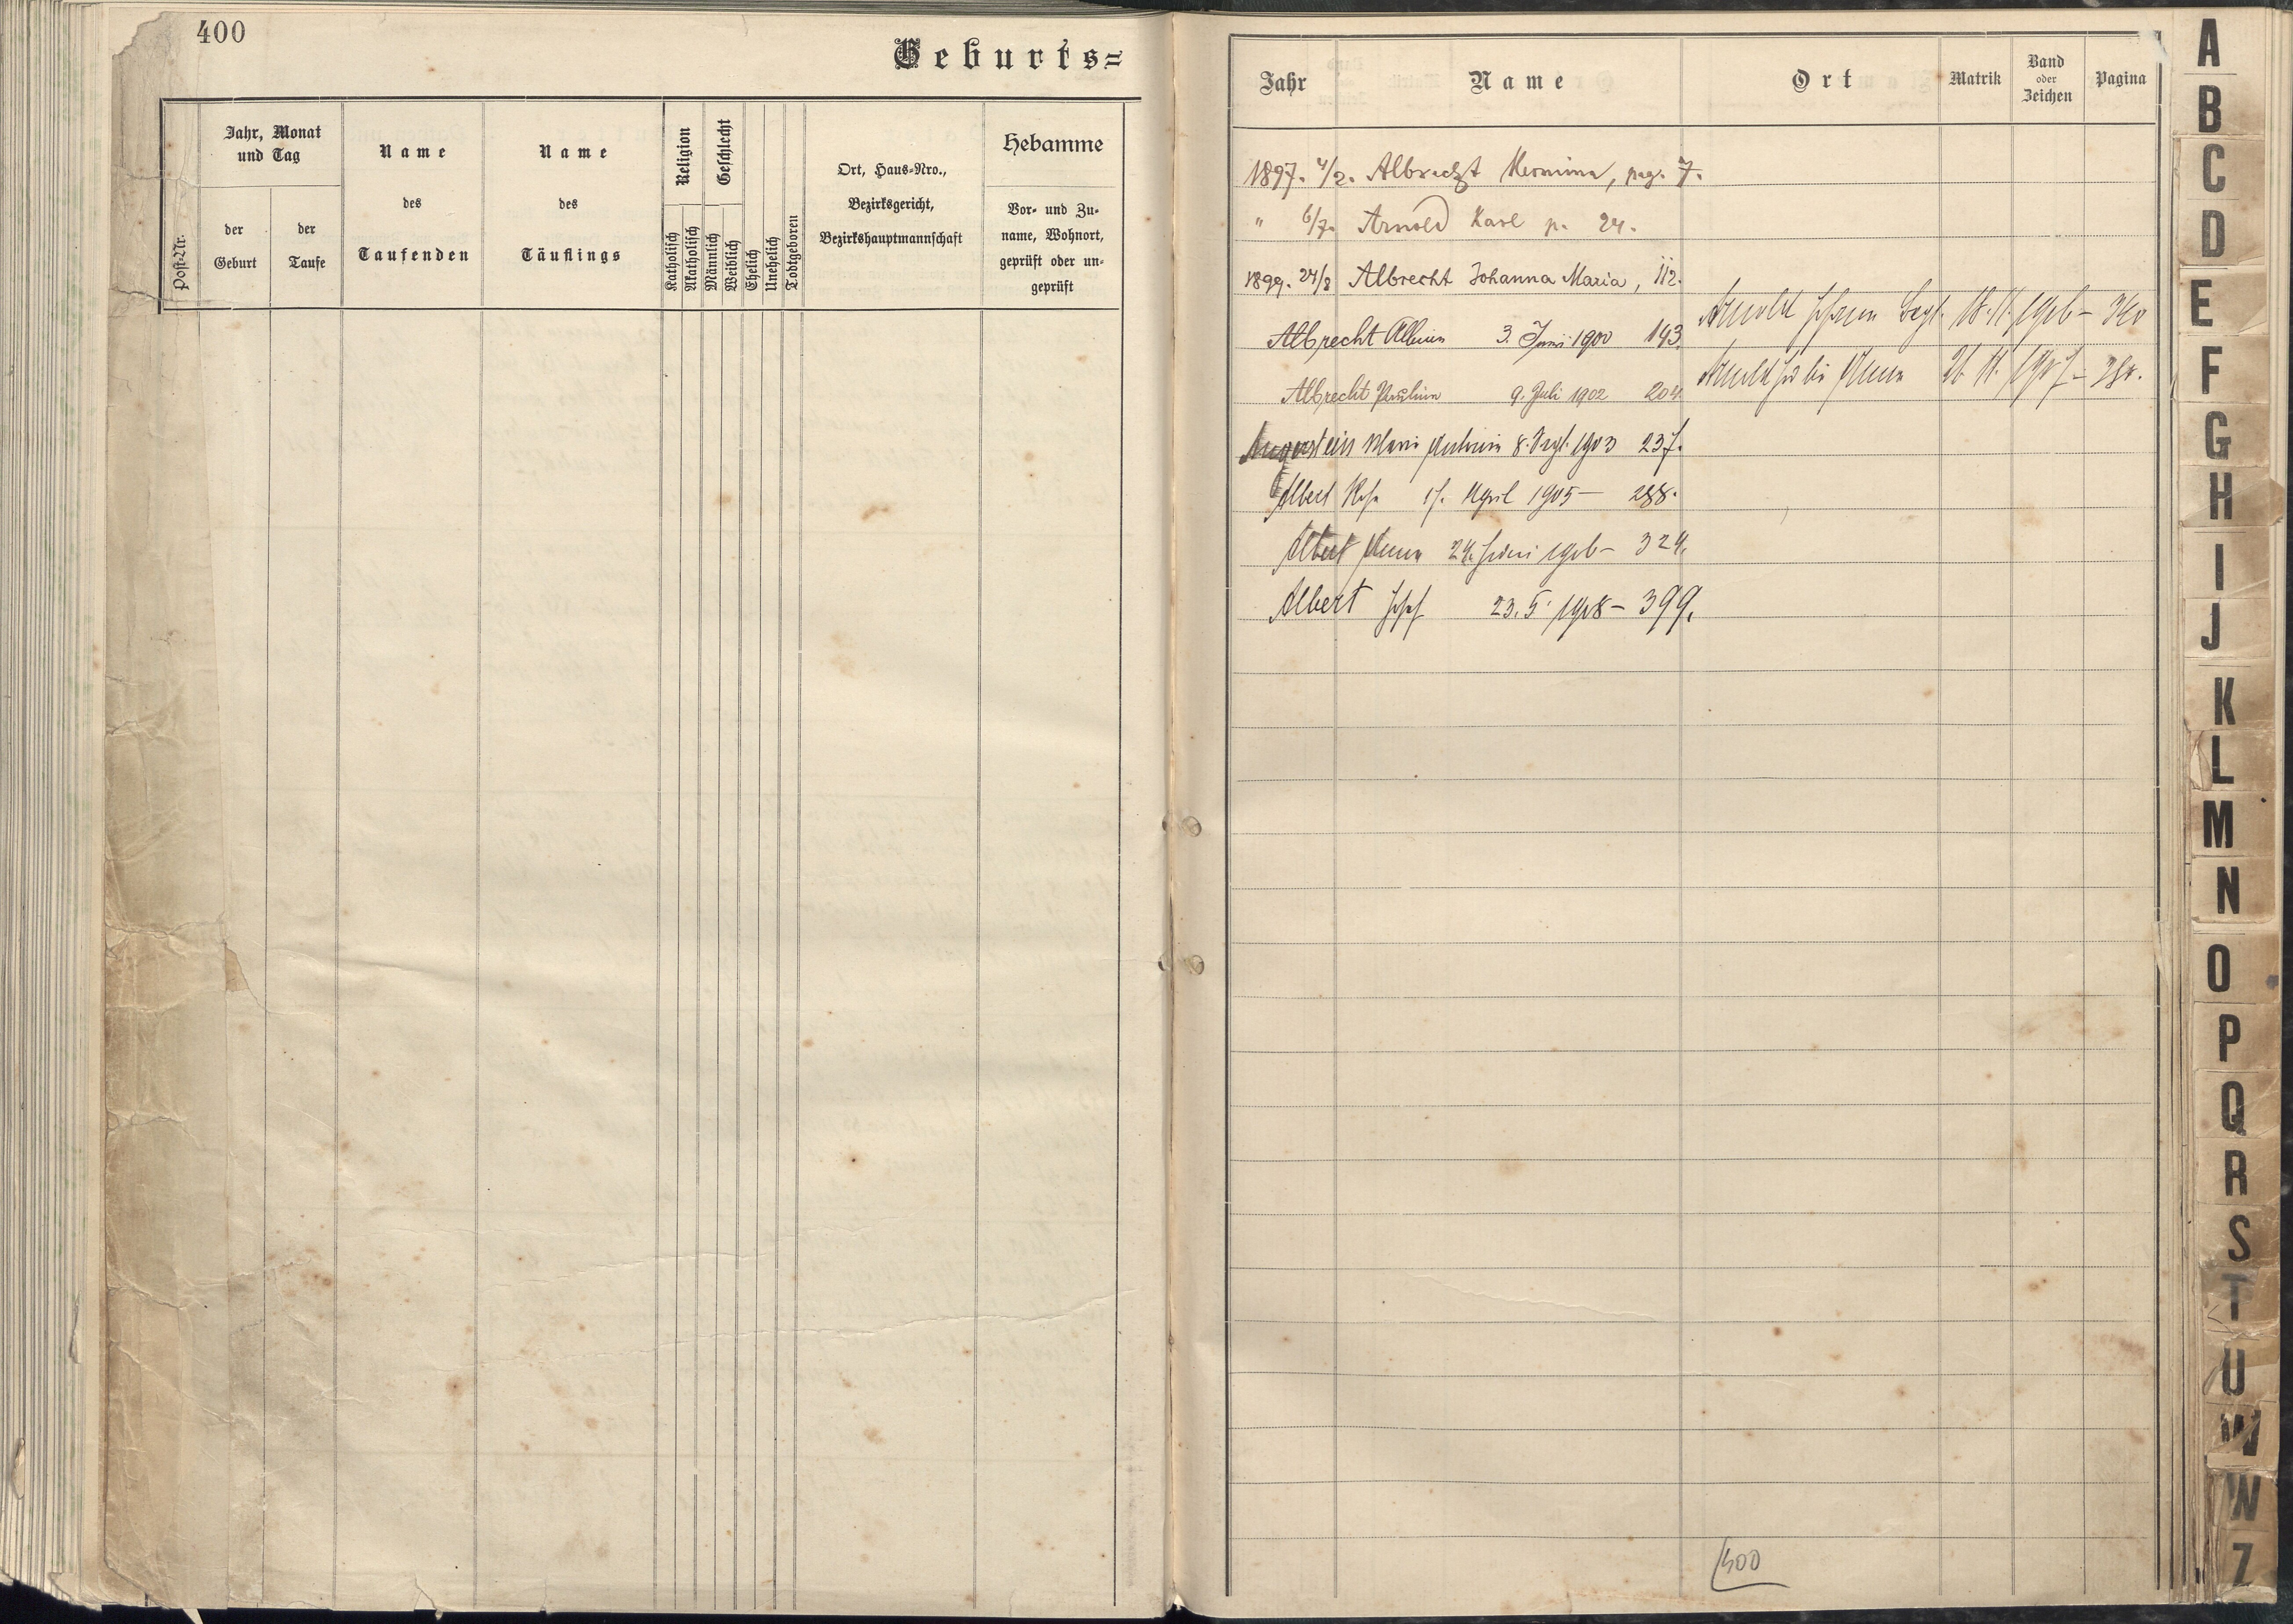 400
Geburts=
Post-Nr.
Jahr, Monat
und Tag
der
Geburt
der
Taufe
Name
des
Taufenden
Name
des
Täuflings
Religion
Katholisch
Akatholisch
Geschlecht
Männlich
Weiblich
Ehelich
Unehelich
Todtgeboren
Ort, Haus-Nro.,
Bezirksgericht,
Bezirkshauptmannschaft
Hebamme
Vor- und Zu-
name, Wohnort,
geprüft oder un-
geprüft
Jahr
Name
Ort
Matrik
Band
oder
Zeichen
Pagina
1897. 4/2. Albrecht Hermine, pag. 7.
" 6/7. Arnold Karl p. 24.
1899. 24/8 Albrecht Johanna Maria, 112.
Albrecht Albin 3. Juni 1900 143.
Albrecht Paulin 9. Juli 1902 204
Augustein Marie 8. Sept. 1903 237.
Albert Rosa 17. April 1905 – 288.
Albert Anna 24. Juni 1906 – 324.
Albert Josef 23.5. 1908 – 399.
Arnold Johann 18.11. 1906 – 340
Arnold Anna 26. 11. 1907 –
400
A
B
C
D
E
F
G
H
I
J
K
L
M
N
O
P
Q
R
S
T
U
W
W
Z